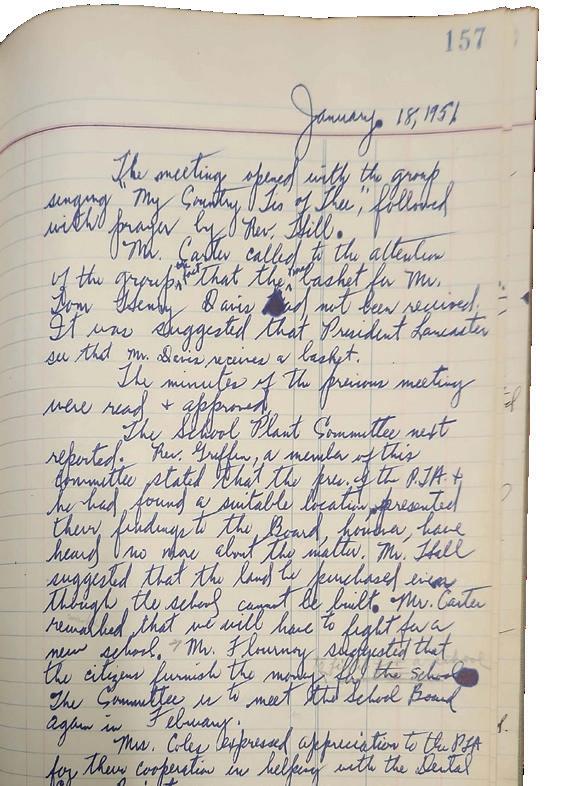 157
January 18, 1951
The meeting opened with the group
singing "My Country Tis of Thee", followed
with prayer by Rev. Hill.
Mr. Carter called to the attention
of the group the fact that the fruit basket for Mr.
Tom Henry Davis had not been received.
It was suggested that President Lancaster
see that Mr. Davis receives a basket.
The minutes of the previous meeting
were read + approved.
The School Plant Committee next
reported. Rev. Griffin, a member of this
committee stated that the pres. of the P.T.A. +
he had found a suitable location, presented
their findings to the Board, however, have
heard no more about the matter. Mr. Hall
suggested that the land be purchased even
though the school cannot be built. Mr. Carter
remarked that we will have to fight for a
new school. Mr. Flournoy suggested that
the citizens furnish the money for the school
The Committee is to meet the School Board
again in February.
Mrs. Coles expressed appreciation to the PTA
for their cooperation in helping with the Dental